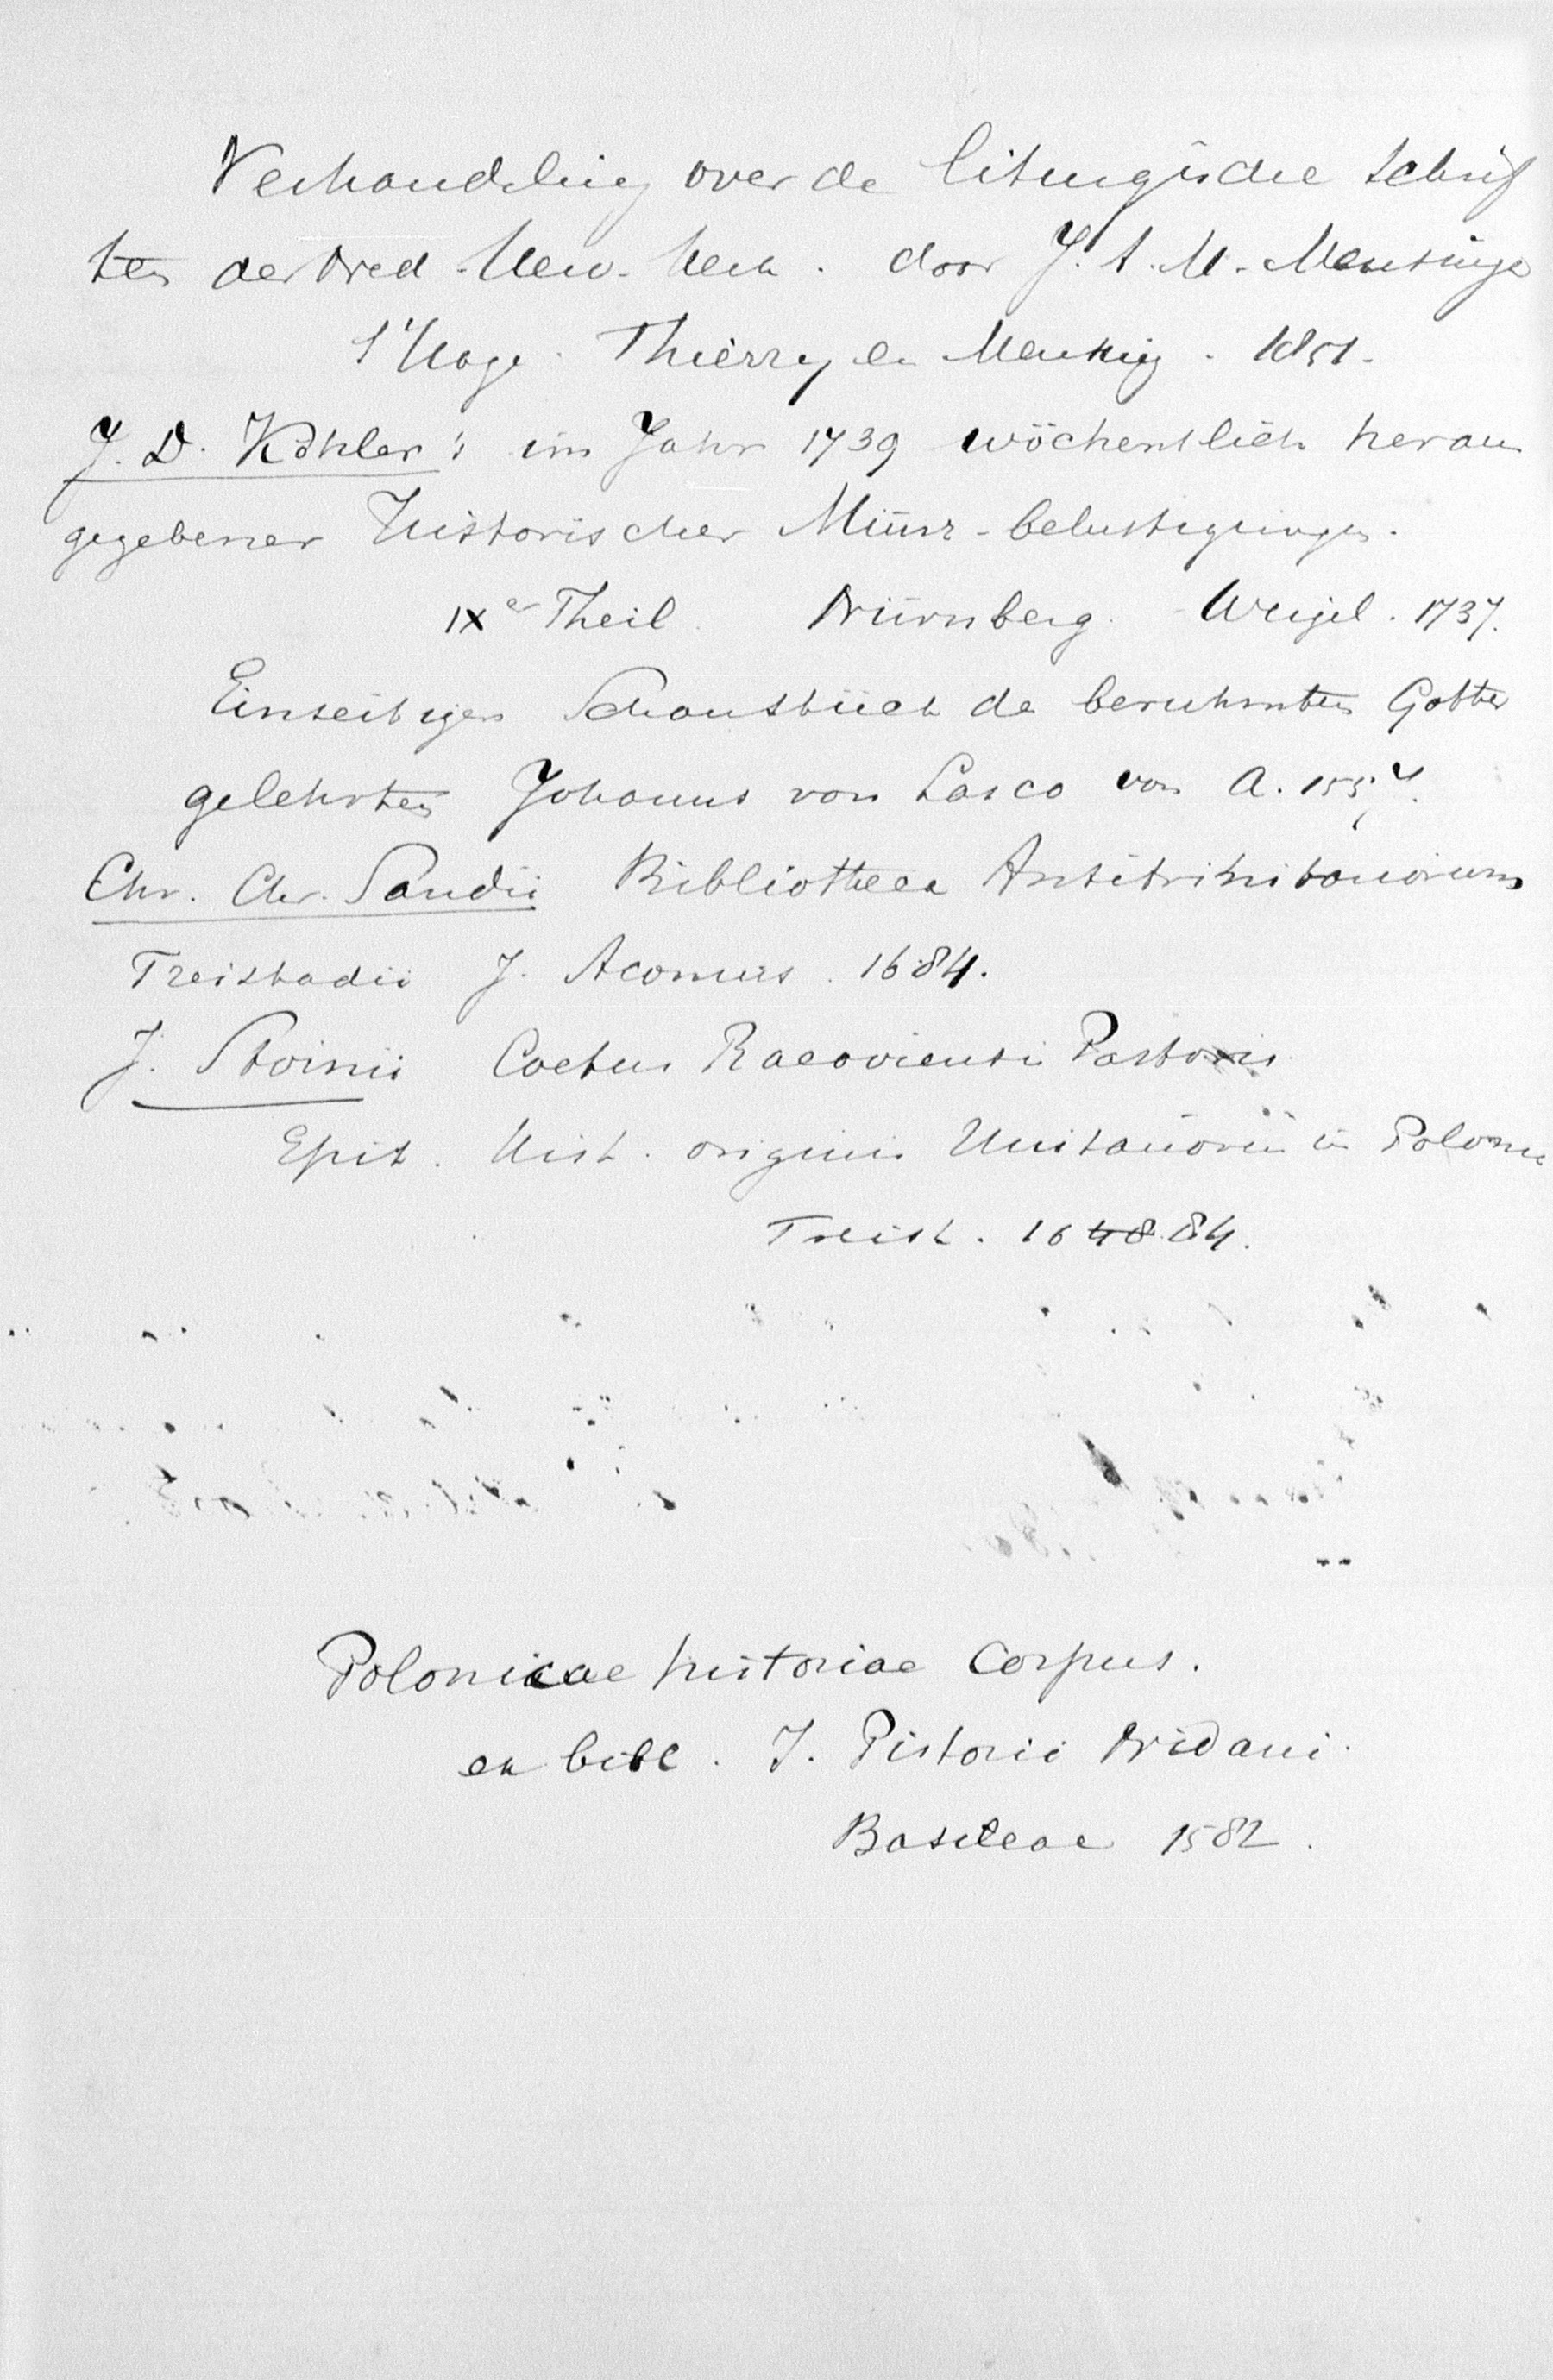 Verhandeling over de liturgische schrif
ten der Ned. Herv. Kerk. door J. A. M. Mensinga
s'Hage. Thierry en Mensing. 1851.
J. D. Köhler's im Jahr 1739 wöchentlich heraus
gegebener Historischer Münz-belustigungen.
IXer Theil. Nürnberg. Weigel. 1737.
Einseitigen Schaustück de beruhmten Gottes
gelehrten Johannes von Lasco von A. 1557.
Chr. Chr. Sandii Bibliotheca Antitrinitariorum
Freistadii J. Aconius. 1684.
J. Stoinii Coetus Racoviensis Pastoris
Epit. Hist. originis Unitariorum in Polonia
Freist. 16 48 84.
Polonicae historiae Corpus.
ex bibl. J. Pistorii Nidani.
Basileae 1582.